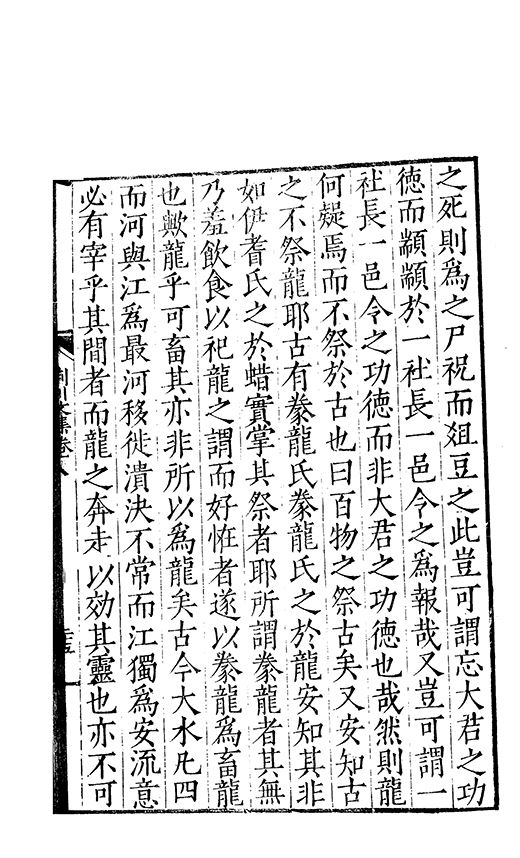 之死則爲之尸祝而爼豆之此豈可謂忘大君之功
德而顓顓於一社長一邑令之爲報哉又豈可謂一
社長一邑令之功德而非大君之功德也哉然則龍
何疑焉而不祭於古也曰百物之祭古矣又安知古
之不祭龍耶古有豢龍氏豢龍氏之於龍安知其非
如伊耆氏之於蜡實掌其祭者耶所謂豢龍者其無
乃羞飲食以祀龍之謂而好怪者遂以豢龍爲畜龍
也歟龍乎可畜其亦非所以爲龍矣古今大水凡四
而河與江爲最河移徙潰決不常而江獨爲安流意
必有宰乎其間者而龍之奔走以効其靈也亦不可
荆川文集卷八